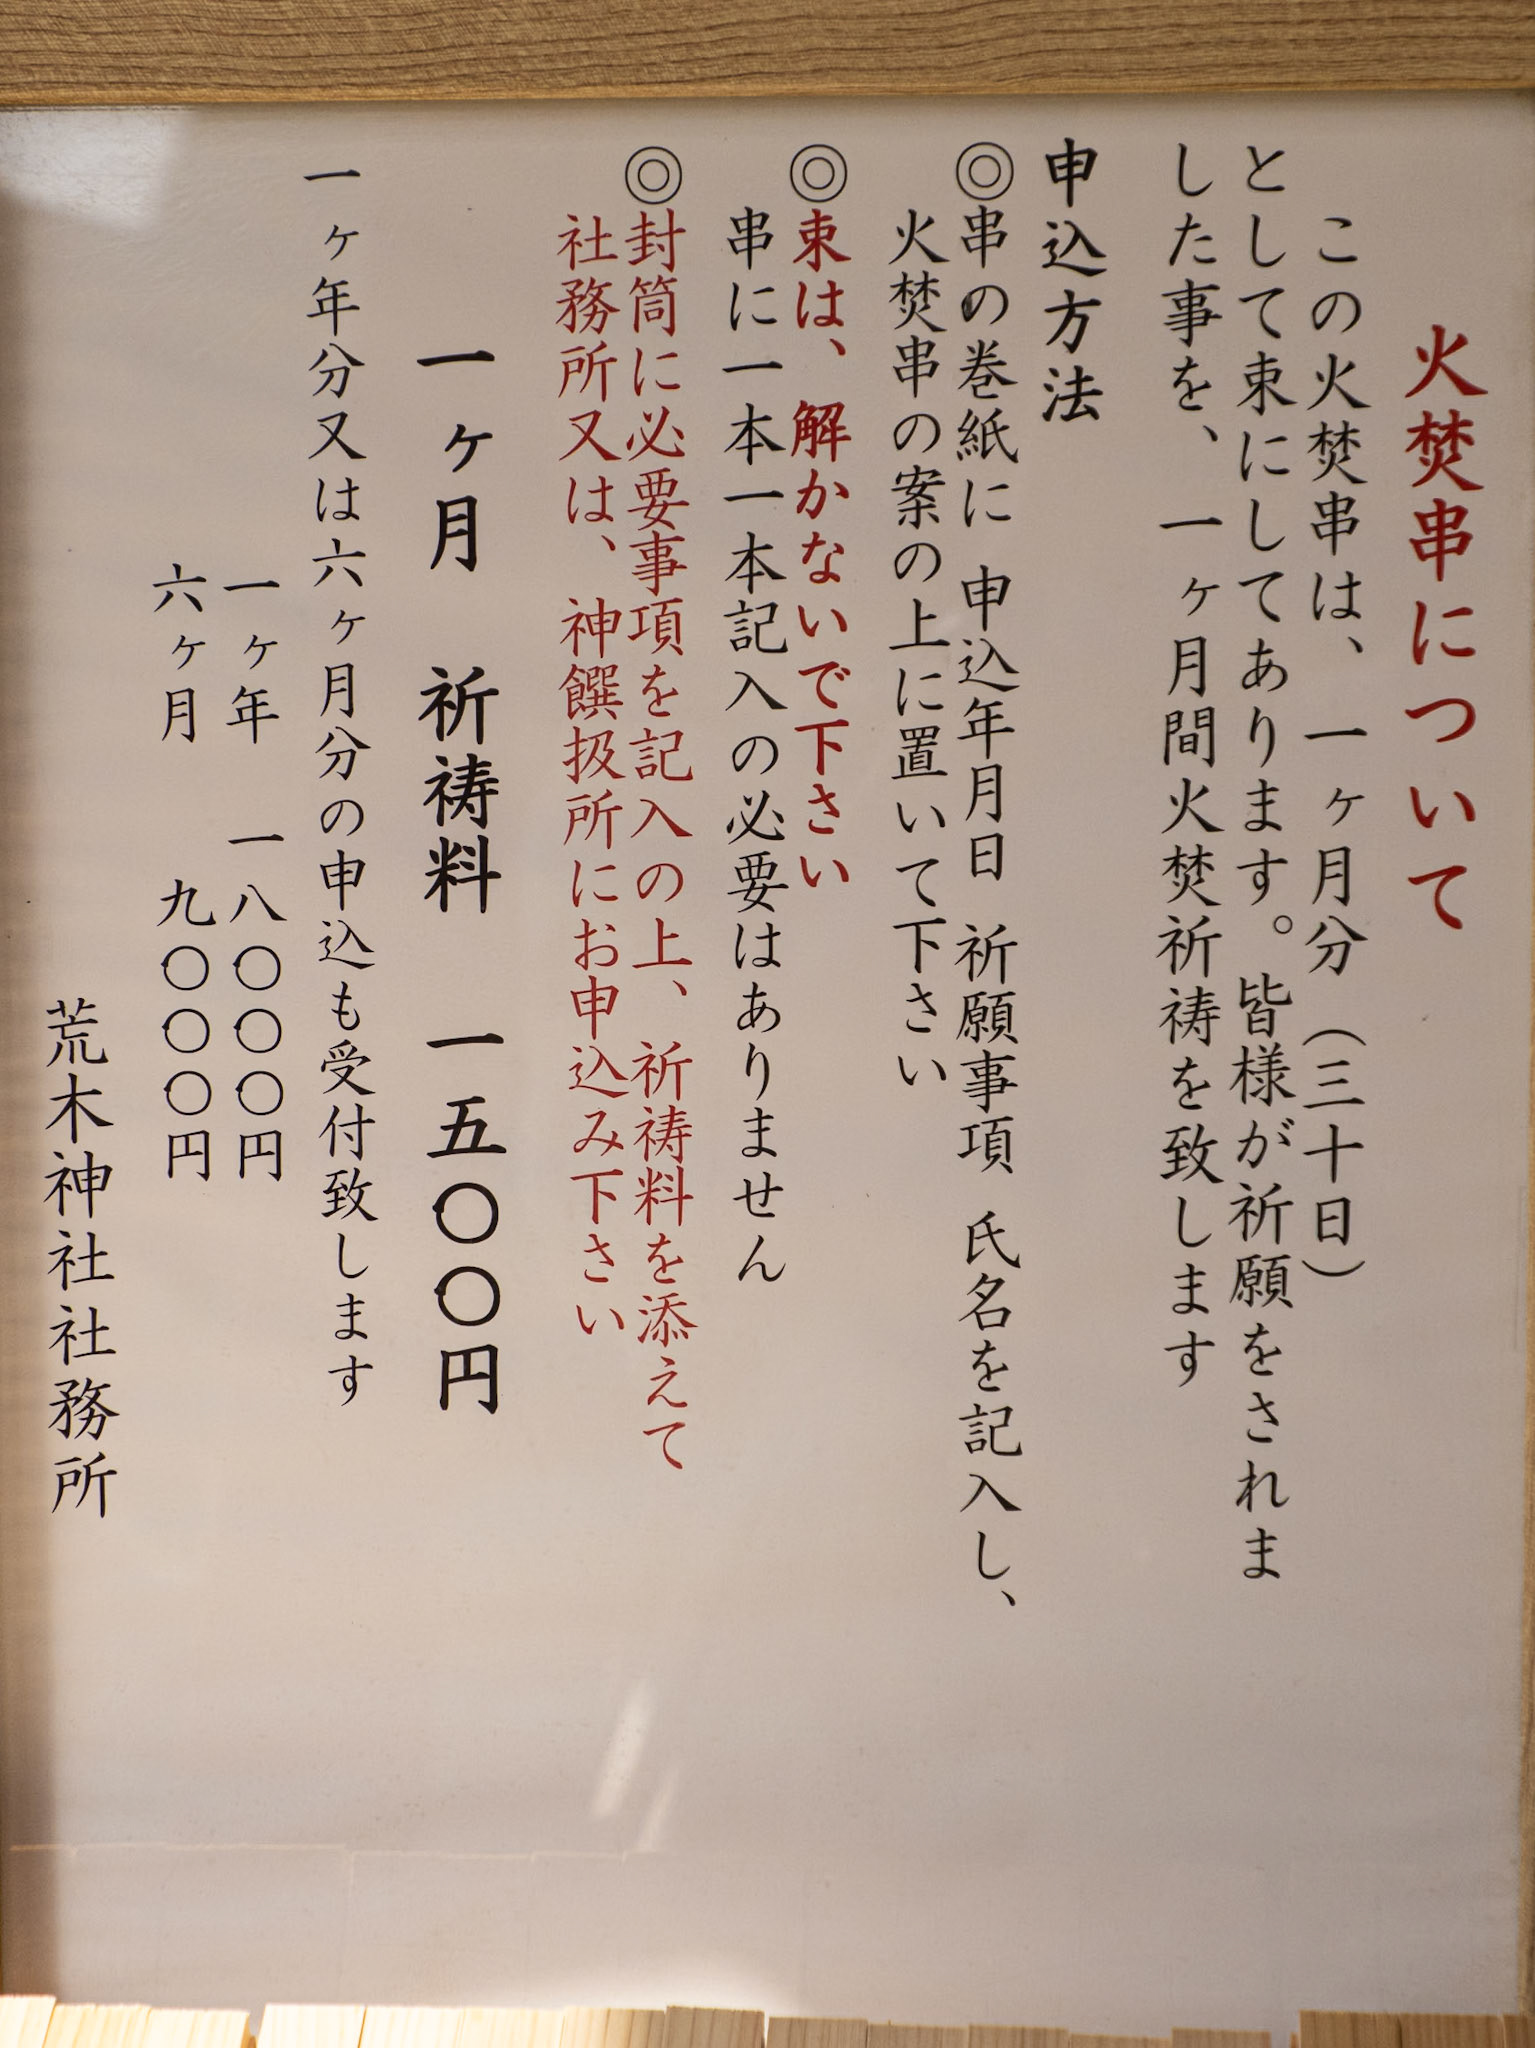 火焚串について
この火焚串は、一ヶ月分（三十日）
として束にしてあります。皆様が祈願をされま
した事を、一ヶ月間火焚祈祷を致します
申込方法
◎串の巻紙に 申込年月日 祈願事項 氏名を記入し、
火焚串の案の上に置いて下さい
◎束は、解かないで下さい
串に一本一本記入の必要はありません
◎封筒に必要事項を記入の上、祈祷料を添えて
社務所又は、神饌扱所にお申込み下さい
一ヶ月 祈祷料 一五〇〇円
一ヶ年分又は六ヶ月分の申込も受付致します
一ヶ年 一八〇〇〇円
六ヶ月 九〇〇〇円
荒木神社社務所